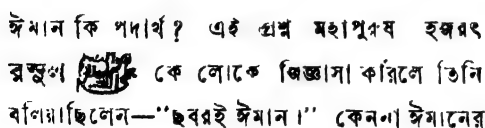 ঈমান কি পদার্থ? এই প্রশ্ন মহাপুরুষ হজরৎ
রসুল কে লোকে জিজ্ঞাসা করিলে তিনি
বলিয়াছিলেন—“ছবরই ঈমান।” কেননা ঈমানের